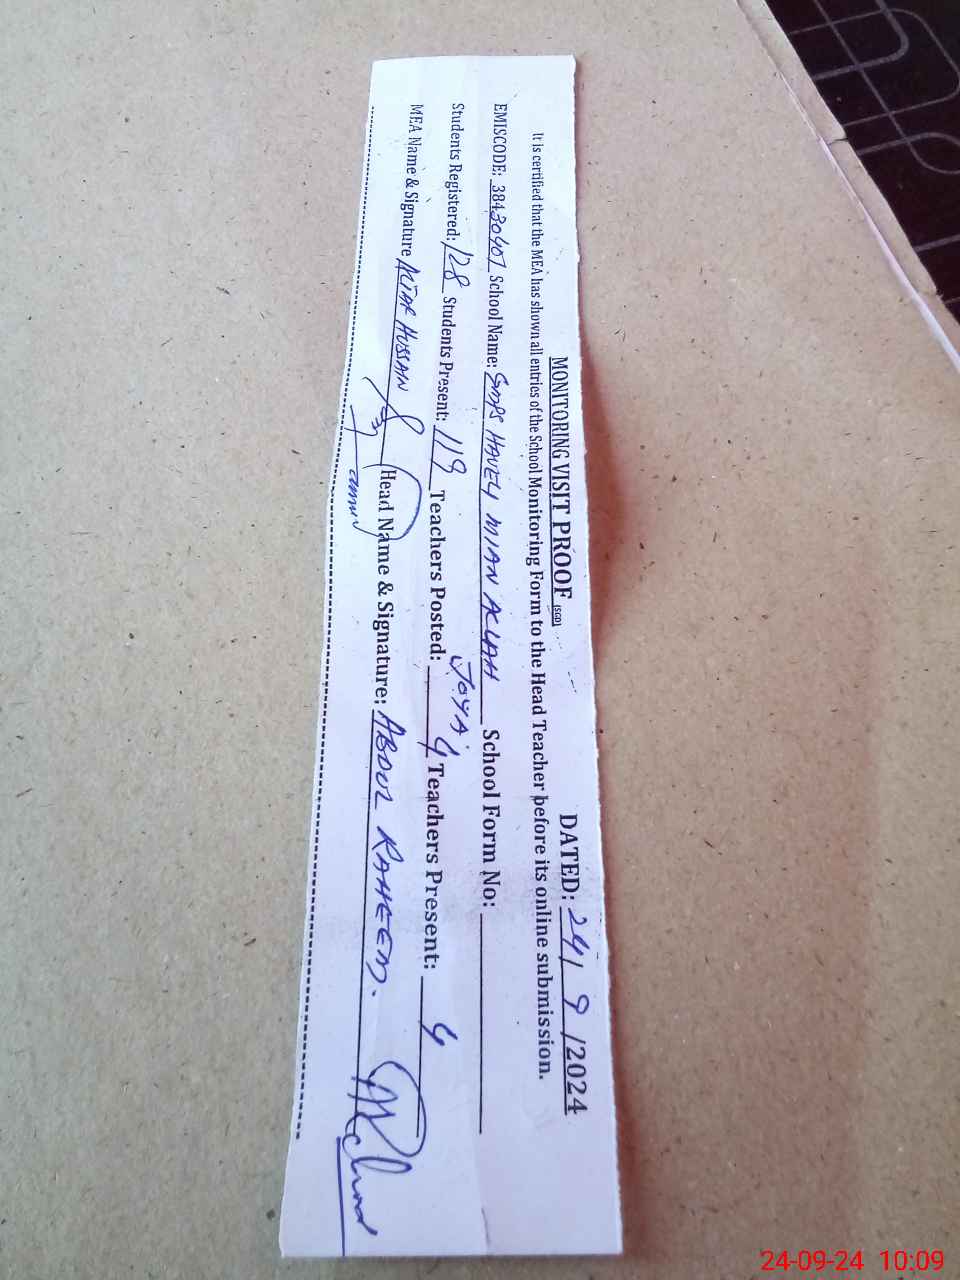 MONITORING VISIT PROOF (SGD) DATED: 24/9/2024
It is certified that the MEA has shown all entries of the School Monitoring Form to the Head Teacher before its online submission.
EMISCODE: 38430407 School Name: GMPS HAVELY MIAN AKYAH School Form No:
JOYA.
Students Registered: 128 Students Present: 119 Teachers Posted: 4 Teachers Present: 4
MEA Name & Signature ALTAF HUSSAIN Head Name & Signature: ABDUL RAHEEM.
24-09-24 10:09